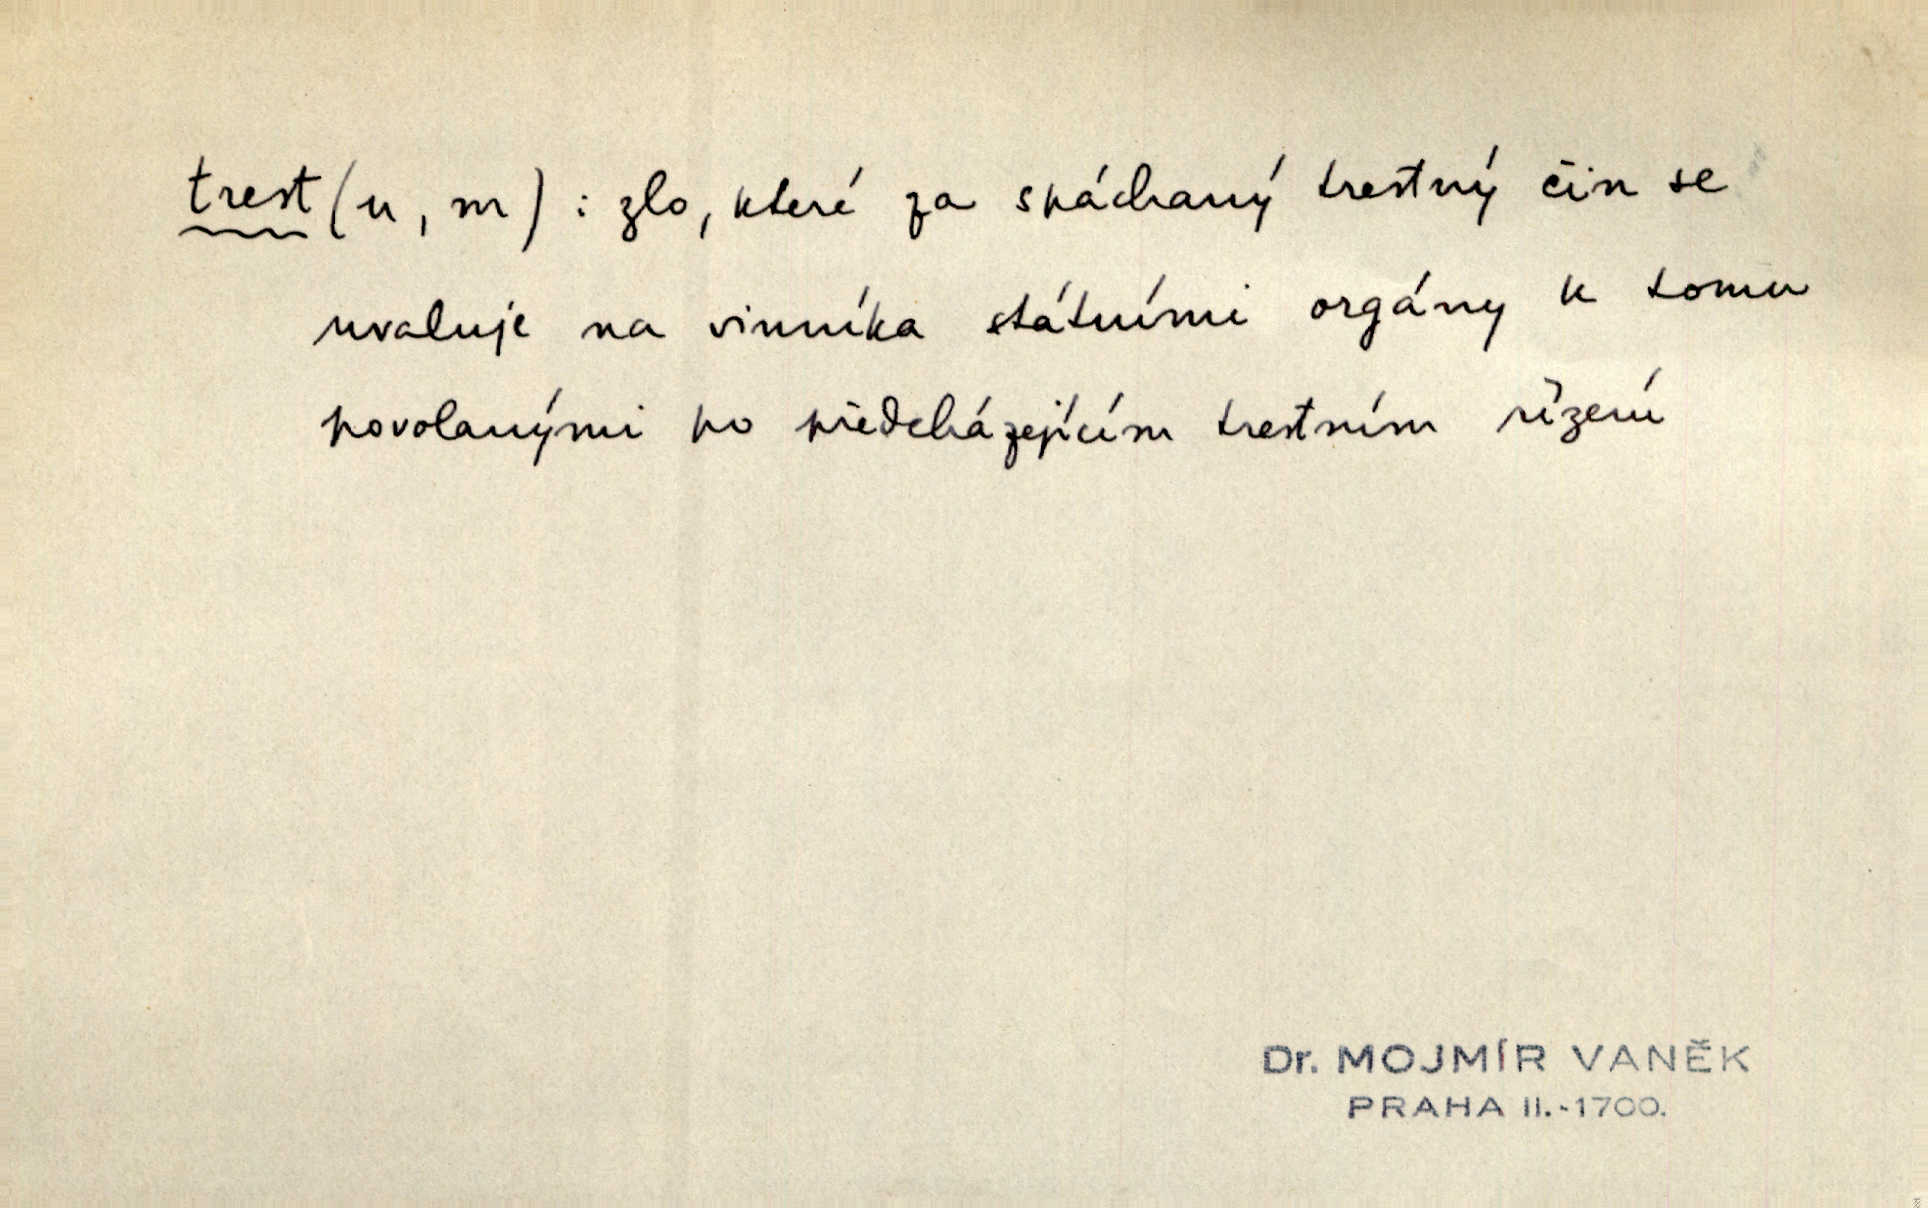 trest (u, m) : zlo, které za spáchaný trestný čin se
uvaluje na vinníka státními orgány k tomu
povolanými po předcházejícím trestním řízení
Dr. MOJMÍR VANĚK
PRAHA II.-1700.